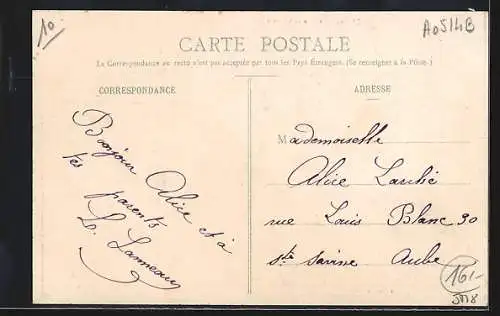 10
A0514B
CARTE POSTALE
La Correspondance au recto n'est pas acceptée par tous les Pays Étrangers. (Se renseigner à la Poste.)
CORRESPONDANCE
Bonjour Alice et à
tes parents
L. Lameau
ADRESSE
Mademoiselle
Alice
rue Louis Blanc 30
Ste Savine Aube
16/-